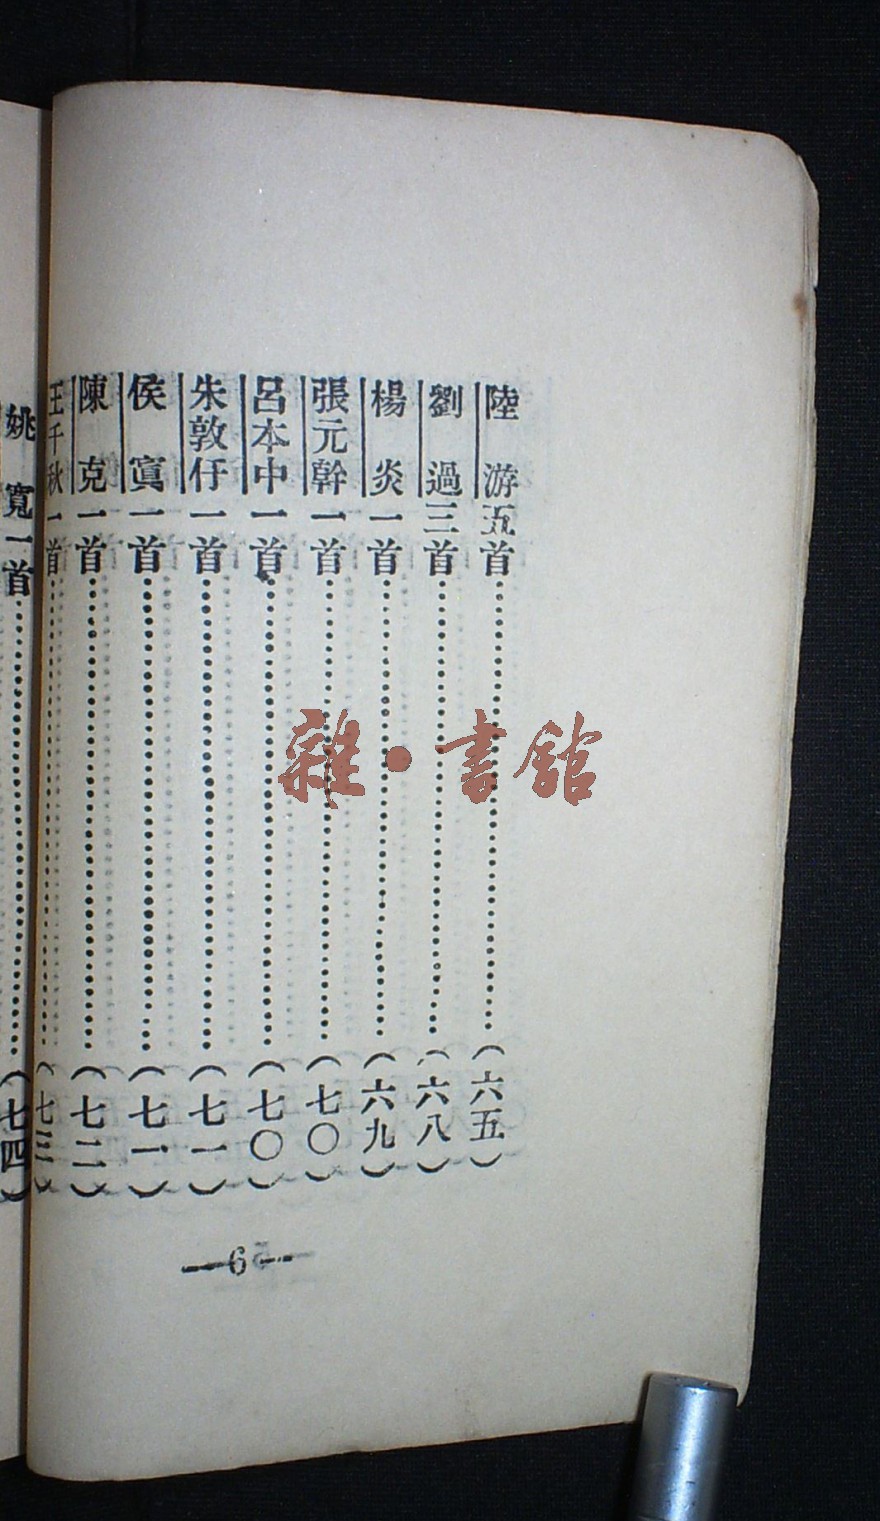 陸游五首……(六五)
劉過三首……(六八)
楊炎一首……(六九)
張元幹一首……(七〇)
呂本中一首……(七〇)
朱敦仔一首……(七一)
侯寘一首……(七一)
陳克一首……(七二)
王千秋一首……(七三)
姚寬一首……(七四)
—6—
雜·書館